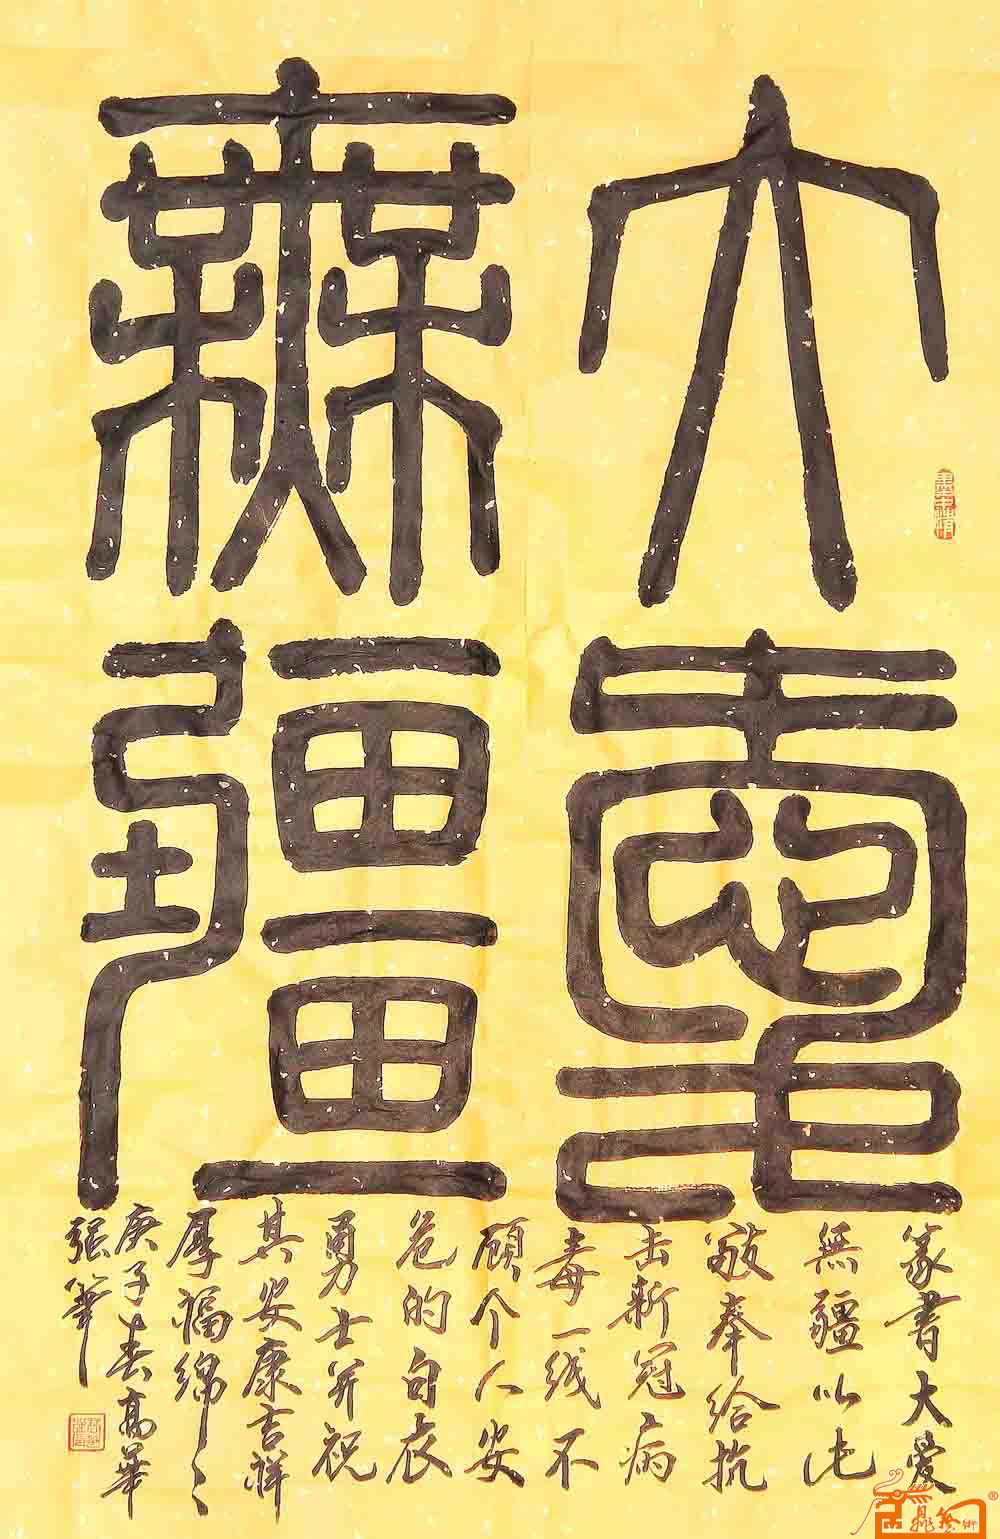 大愛
無疆
篆書大愛
無疆以此
敬奉给抗
击新冠病
毒一线不
顾个人安
危的白衣
勇士并祝
其安康吉祥
厚福绵绵
庚子春高華
张筆
墨中情